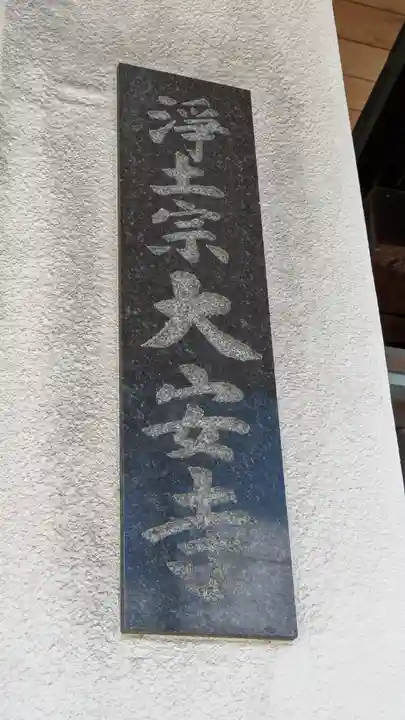 淨土宗大安寺